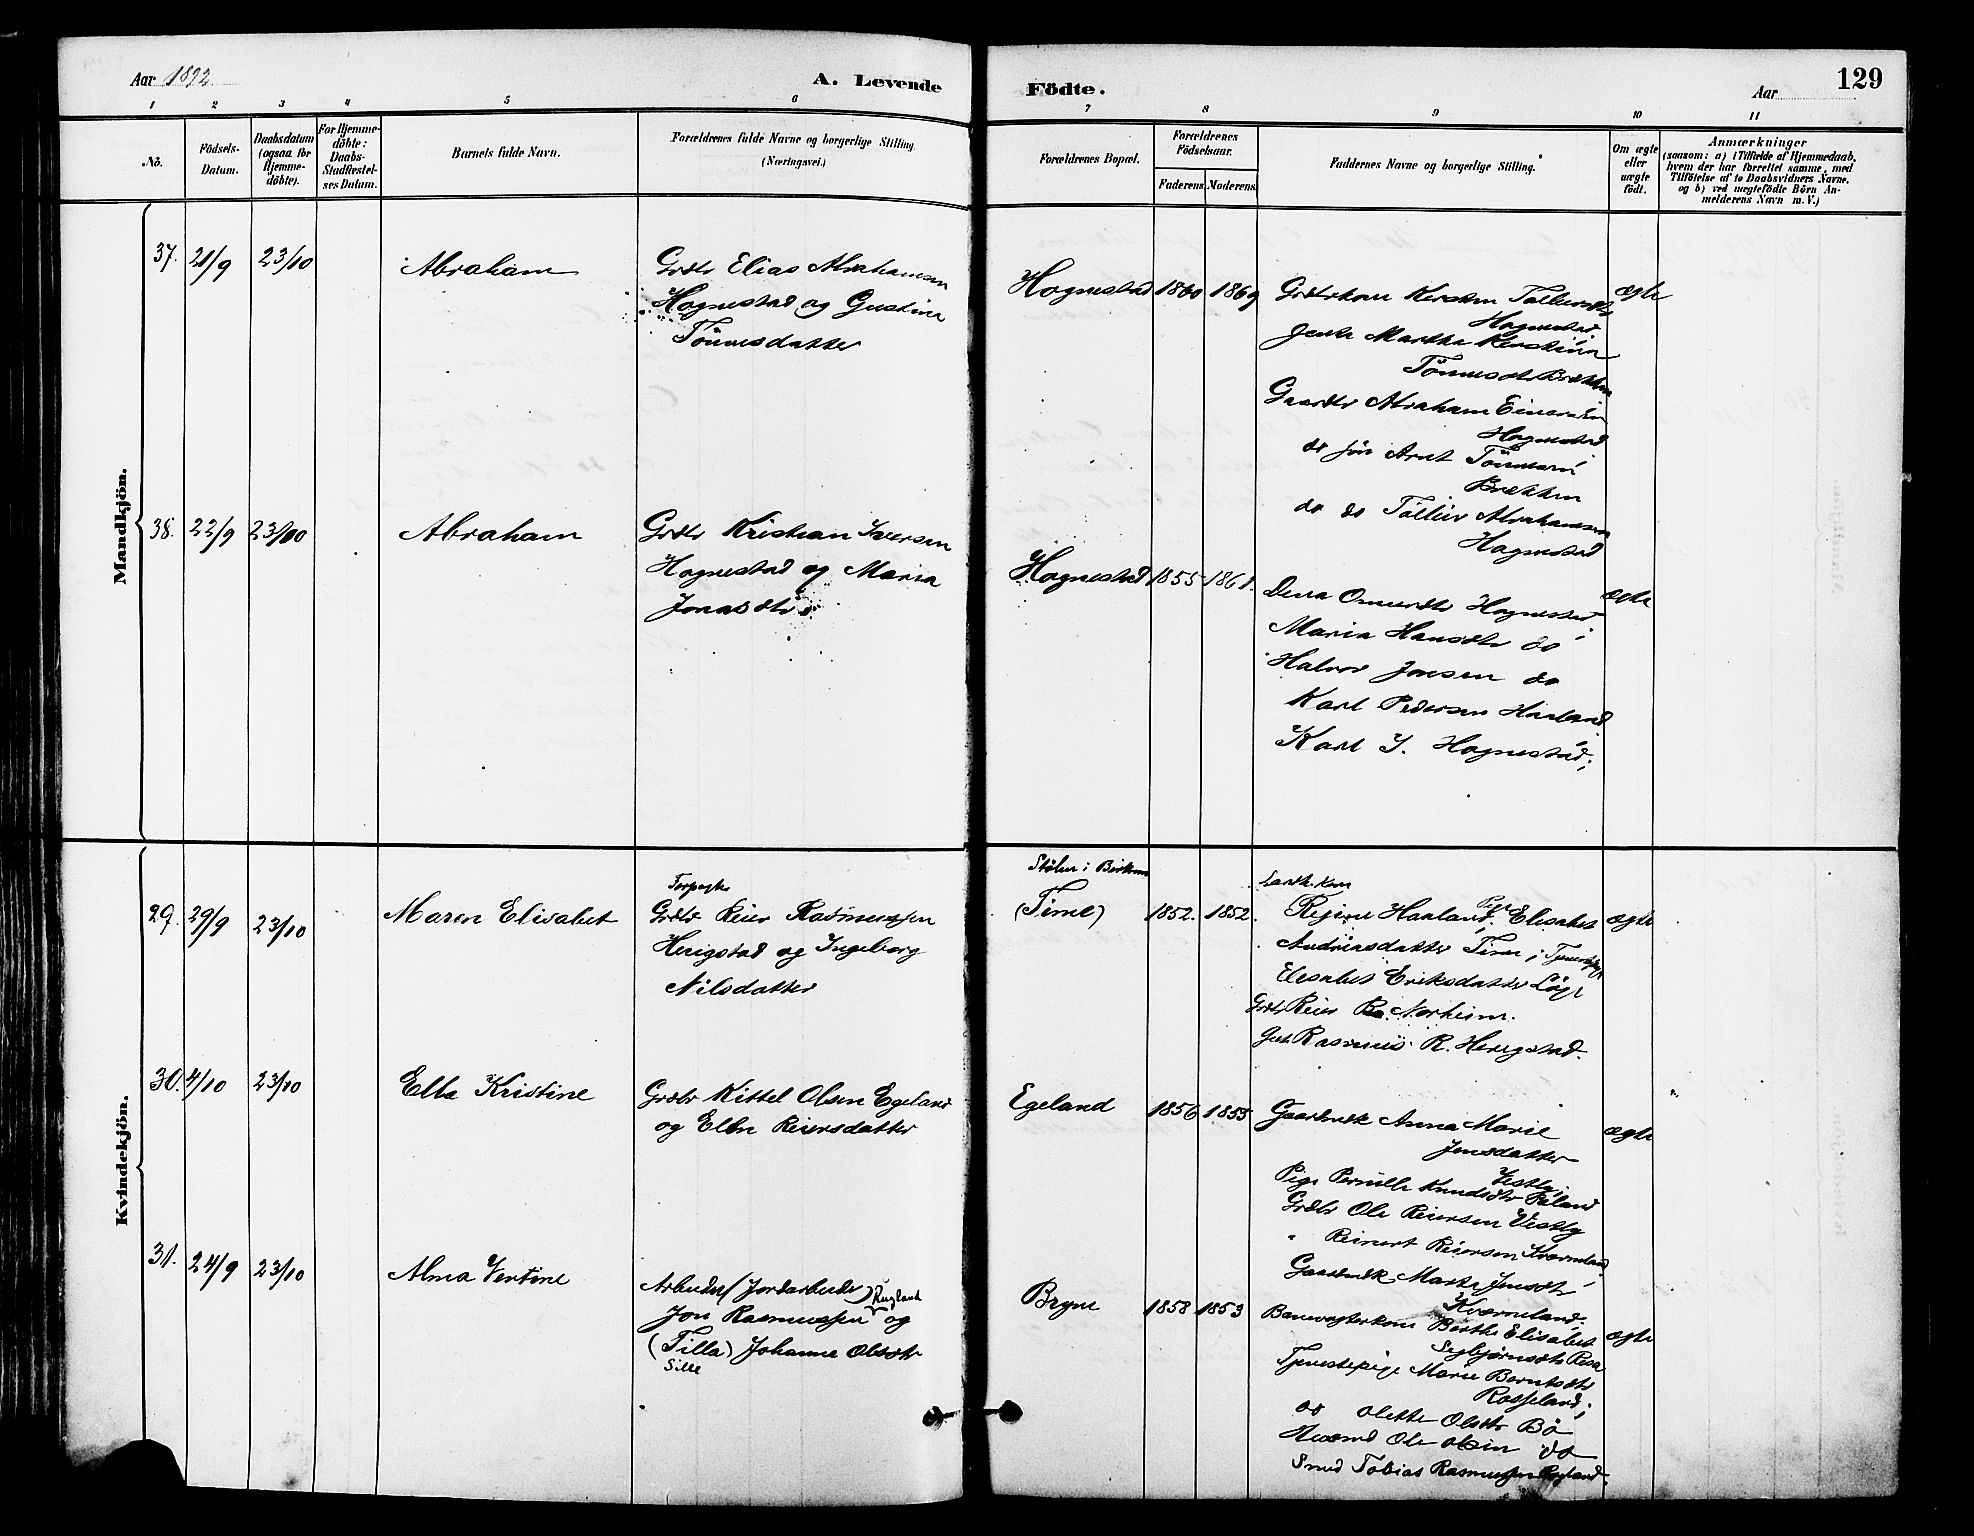 Aar 1892
A. Levende
Födte.
Aar
129
1 2 3 4 5 6 7 8 9 10 11
No.
Födsels-Datum.
Daabsdatum (ogsaa for Hjemme-döbte).
For Hjemme-döbte: Daabs-Stadfæstel-ses Datum.
Barnets fulde Navn.
Forældrenes fulde Navne og borgerlige Stilling (Næringsvei.)
Forældrenes Bopæl.
Forældrenes Födselsaar.
Faderens. Moderens.
Faddernes Navne og borgerlige Stilling.
Om ægte eller uægte födt.
Anmærkninger
(saasom: a) i Tilfælde af Hjemmedaab,
hvem der har forrettet samme, med
Tilföielse af to Daabsvidners Navne.
og b) ved uægtefödte Börn An-
melderens Navn m. V.)
Mandkjön.
37. 21/9 23/10
Abraham
Grdbr Elias Abrahamsen
Hognestad og Gustina
Tönnesdatter
Hognestad 1860 1869
Grdbrkone Kersten
Hognestad
Marthe Kerstine
Tönnesdtr Brekken
Gaardbr Abraham Einersen
Hognestad
do søn Arnt Tönnesen
Brekken
do do Abrahamsen
Hognestad
ægte
38. 22/9 23/10
Abraham
Grdbr Kristian Iversen
Hognestad og Maria
Jonasdtr
Hognestad 1855 1861.
Omundtr Hognestad
Maria Hansdtr do
Halvor Jonsen do
Karl Pedersen Haaland
Karl I. Hognestad;
ægte
Kvindekjön.
29. 29/9 23/10
Maren Elisabet
Grdbr Reier Rasmussen
Herigstad og Ingeborg
Nilsdatter
(Time) 1852. 1852.
Regine Haaland, Pige Elisabet
Andreasdatter Time;
Elisabet Eriksdatter
Grdbr Reier Norheim.
Rasmus R. Herigstad.
ægte
30. 4/10 23/10
Elba Kristine
Grdbr Kittel Olsen Egeland
og Elen Reiersdatter
Egeland 1856 1855
Anna Marie
Jensdatter
Vestly
Pige Pernille Knudsdtr
Grdbr Ole Reiersen Vestly
" Reinert Reiersen Kverneland
Jensdtr
Kverneland.
ægte
31. 24/9 23/10
Alma Vertine
Arbeider (Jordarbeider) Rugland
Jon Rasmussen og
(Tilla) Johanne Olsdtr
Sille
Bryne 1858 1853
Banevogterkone Berthe Elisabet
Tjenestepige Marie Berntsdtr
Rosseland;
do Olette Olsdtr Bö
Ole Olsen do
Smed Tobias Rasmussen Rugland.
ægte